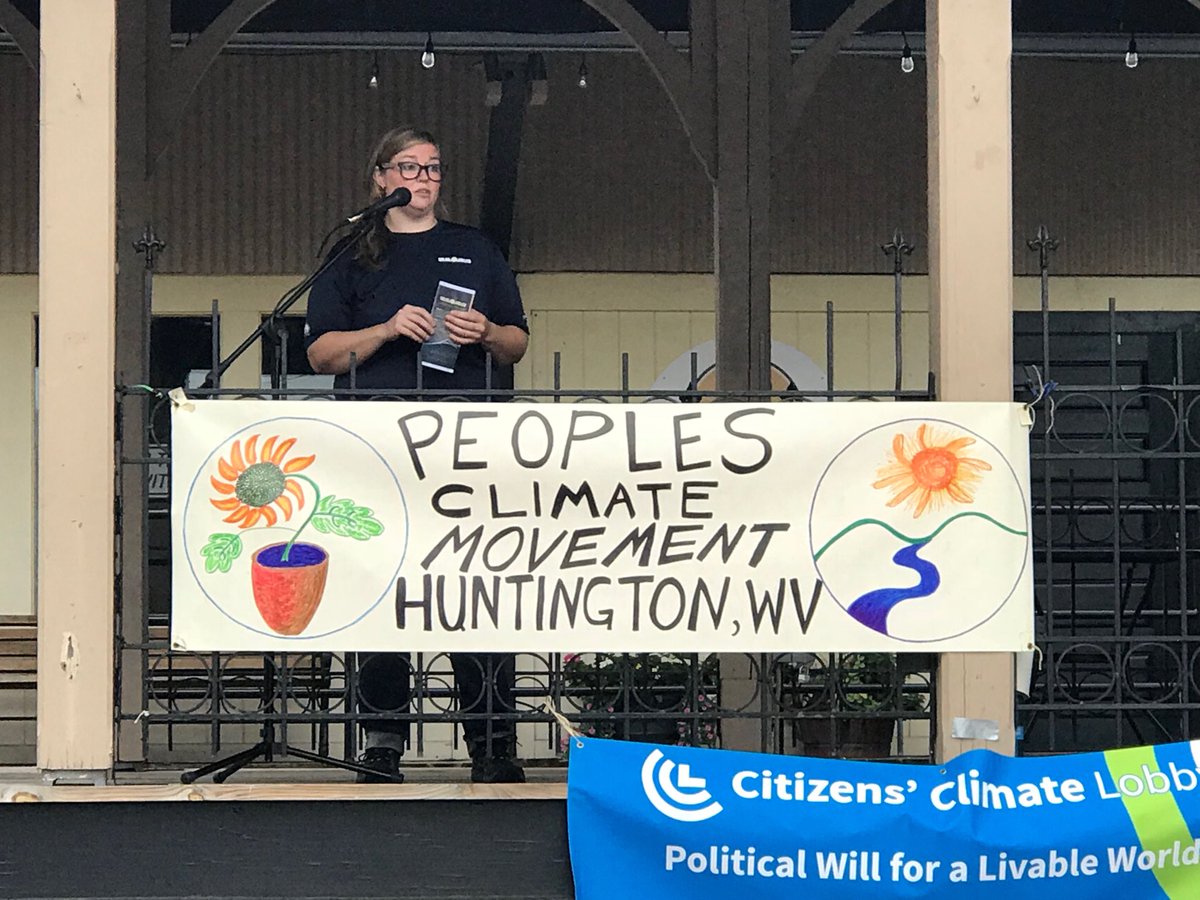 PEOPLES
CLIMATE
MOVEMENT
HUNTINGTON, WV
Citizens' Climate Lobb
Political Will for a Livable World